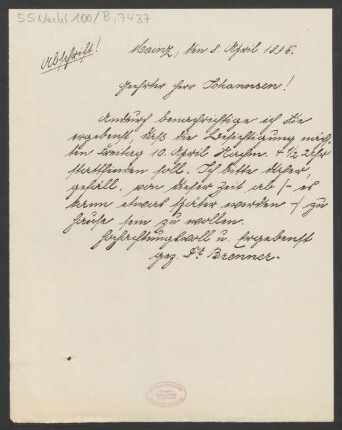 55 Nachl 100/B, 7437
Abschrift!
Mainz, den 8. April 1896.
Geehrter Herr Johannsen!
Andurch benachrichtige ich Sie
ergebenst, daß die Besichtigung näch-
sten Freitag 10. April Nachm. 4 1/2 Uhr
stattfinden soll. Ich bitte daher,
gefäll. von dieser Zeit ab /- es
kann etwas später werden -/ zu
Hause sein zu wollen.
Hochachtungsvoll u. Ergebenst
gez. Dr. Brenner.